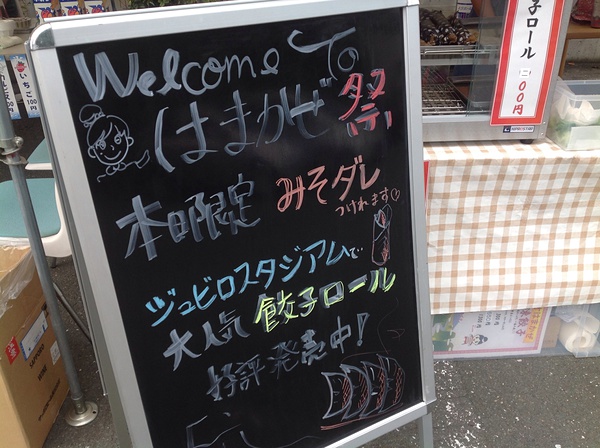 Welcome To
はまかぜ祭
本日限定
みそダレ
つけれます♡
ジュビロスタジアムで、
大人気 餃子ロール
好評発売中!
子ロール
二〇〇円
いちご
100円